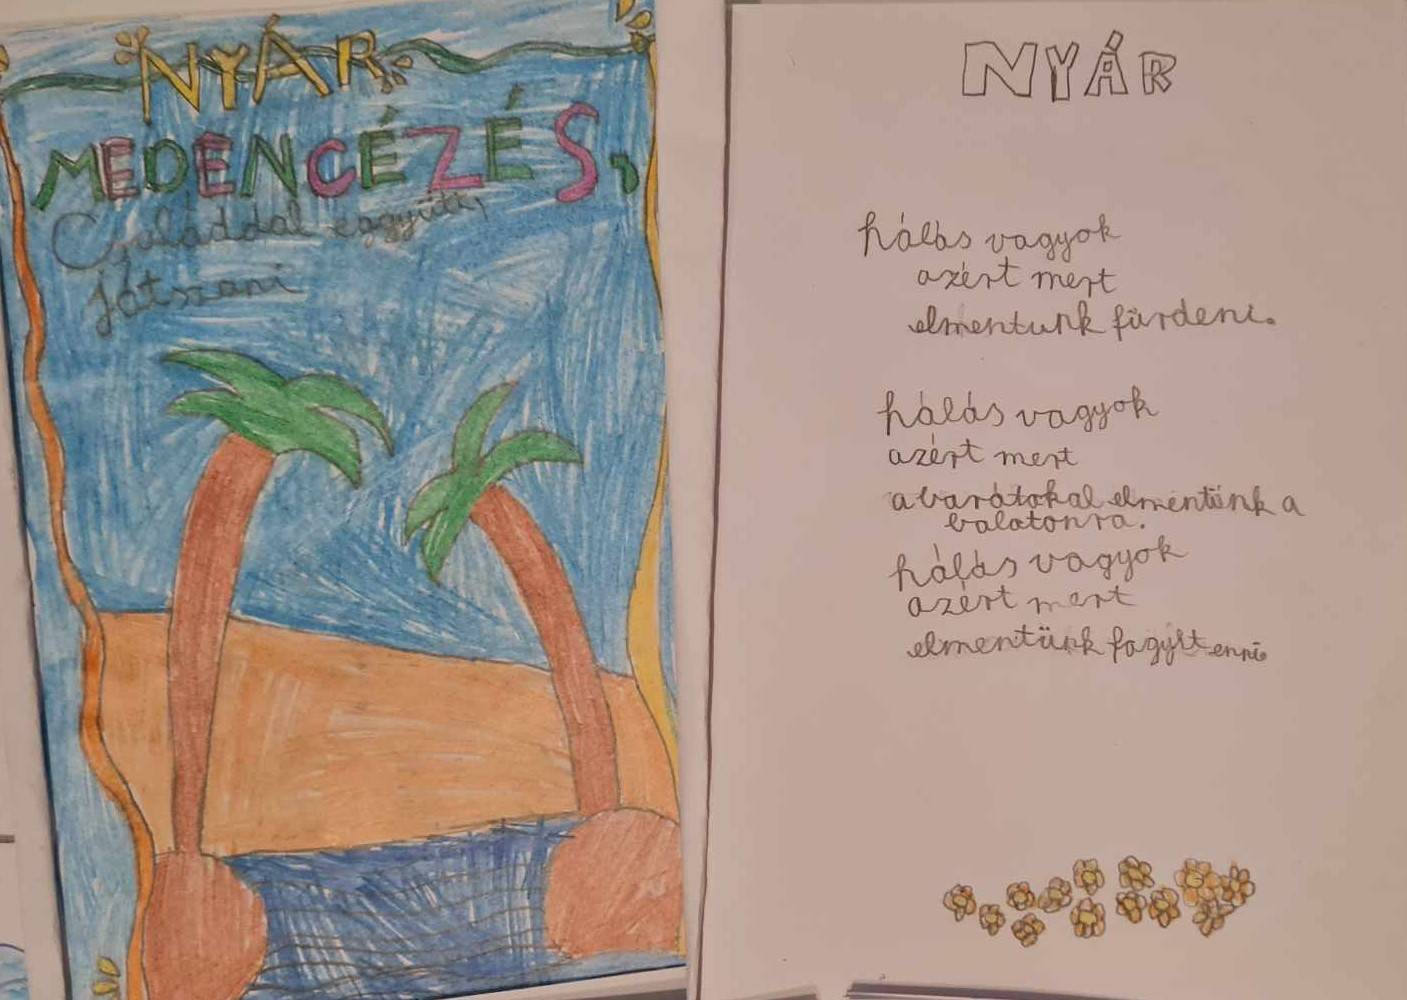 NYÁR
MEDENCÉZÉS,
Családdal eggyütt,
Játszani
NYÁR
hálás vagyok
azért mert
elmentunk fürdeni.
hálás vagyok
azért mert
a barátokal elmentünk a
balatonra.
hálás vagyok
azért mert
elmentünk fagyit enni